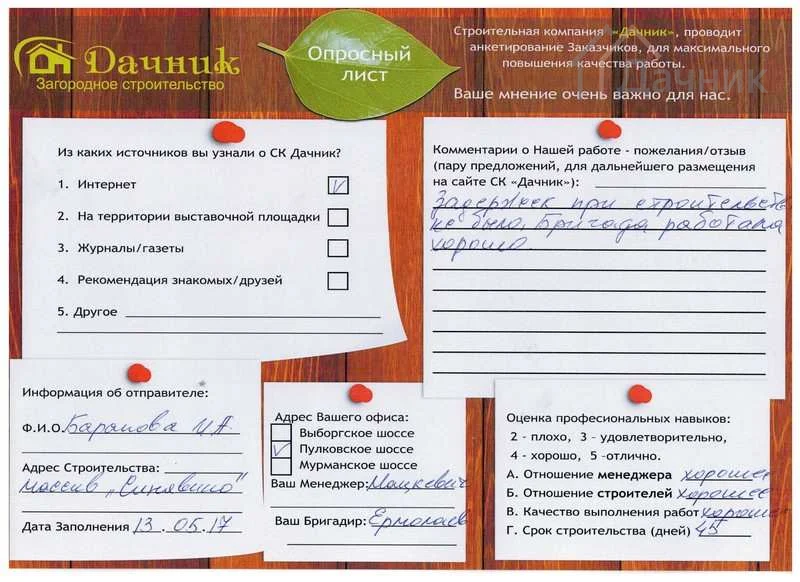 Дачник
Загородное строительство
Опросный
лист
Строительная компания «Дачник», проводит
анкетирование Заказчиков, для максимального
повышения качества работы.
Дачник
Ваше мнение очень важно для нас.
Из каких источников вы узнали о СК Дачник?
1. Интернет V
2. На территории выставочной площадки
3. Журналы/газеты
4. Рекомендация знакомых/друзей
5. Другое
Комментарии о Нашей работе - пожелания/отзыв
(пару предложений, для дальнейшего размещения
на сайте СК «Дачник»):
Задержек при строительств
не было. Бригада работала
хорошо.
Информация об отправителе:
Ф.И.О. Баранова И.А.
Адрес Строительства:
массив „Синявино"
Дата Заполнения 13.05.17
Адрес Вашего офиса:
Выборгское шоссе
V Пулковское шоссе
Мурманское шоссе
Ваш Менеджер: Мацкевич
Ваш Бригадир: Ермолаев
Оценка профессиональных навыков:
2 - плохо, 3 - удовлетворительно,
4 - хорошо, 5 -отлично.
А. Отношение менеджера хорошее
Б. Отношение строителей хорошее
В. Качество выполнения работ хорошее
Г. Срок строительства (дней) 45